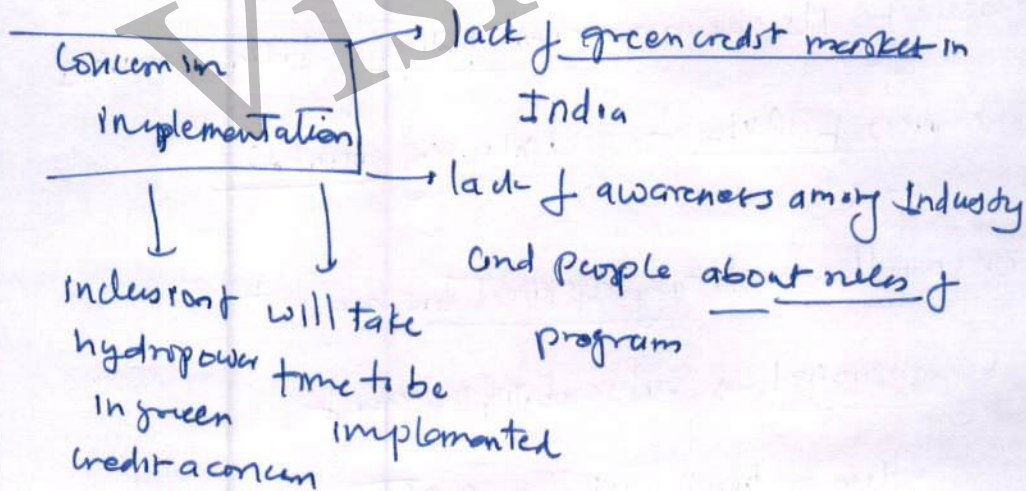 Concern in
implementation
→ lack of green credit market in
India
→ lack of awareness among Industry
and people about rules of
program
inclusion of
hydropower
in green
credit a concern
will take
time to be
implemented
Vis